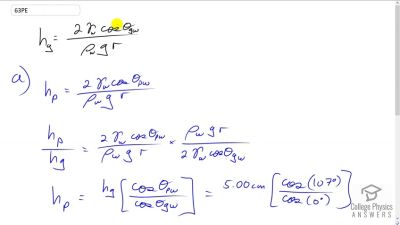 63PE
h_g = 2 γ_w cos θ_gw / ρ_w g r
a) h_p = 2 γ_w cos θ_pw / ρ_w g r
h_p / h_g = 2 γ_w cos θ_pw / ρ_w g r × ρ_w g r / 2 γ_w cos θ_gw
h_p = h_g [ cos θ_pw / cos θ_gw ] = 5.00 cm [ cos(107°) / cos(0°) ]
College Physics
ANSWERS